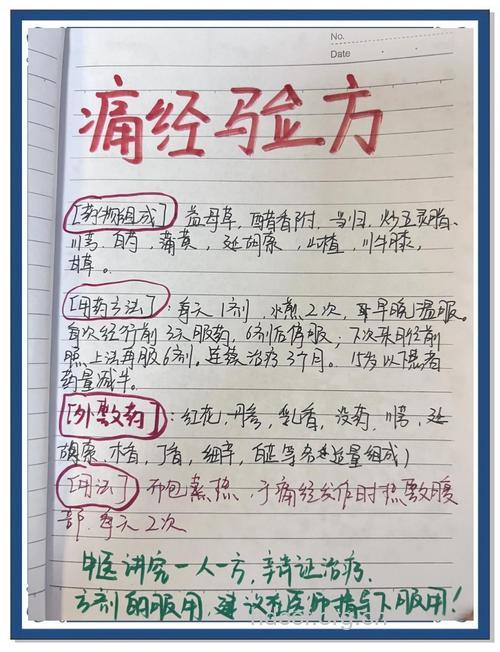 No.
Date
痛经验方
[药物组成] 益母草,醋香附,当归,炒五灵脂、
川芎,白芍,蒲黄,延胡索,山楂,川牛膝,
甘草。
[用药方法]:每天1剂,水煎2次,早晚温服。
每次经行前3天服药,6剂后停服;下次来月经前
照上法再服6剂。连续治疗3个月。15岁以下患者
药量减半。
[外敷药]:红花,丹参,乳香,没药,川芎,延
胡索,木香,丁香,细辛,白芷等各适量组成)
[用法] 布包蒸热,于痛经发作时热敷腹
部,每天2次
中医讲究一人一方,辨证治疗,
方剂的服用,建议在医师指导下服用!